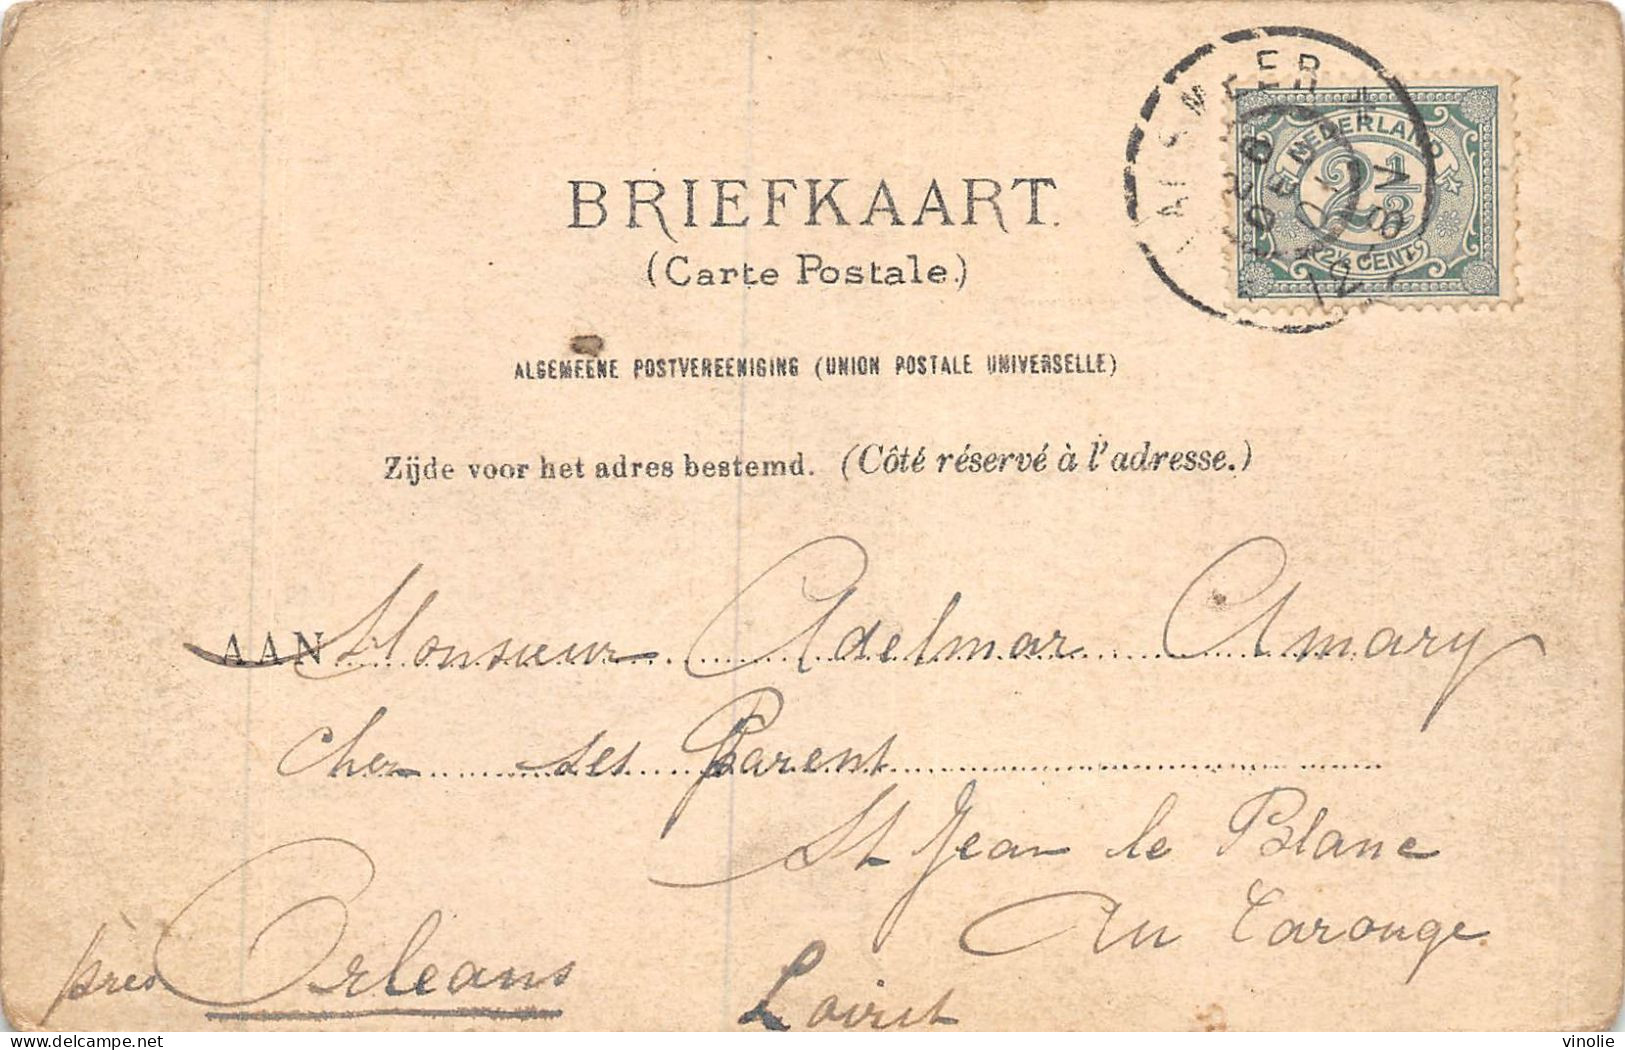 BRIEFKAART
(Carte Postale.)
ALGEMEENE POSTVEREENIGING (UNION POSTALE UNIVERSELLE)
Zijde voor het adres bestemd. (Côté réservé à l'adresse.)
NEDERLAND
2½
2½ CENT
AALSMEER
AAN Monsieur Adelmar Amary
chez ses Parent
St Jean le Blanc
Au Carouge
près Orleans
Loiret
vinolie
delcampe.net